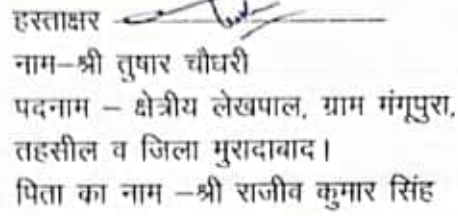 हस्ताक्षर
नाम–श्री तुषार चौधरी
पदनाम – क्षेत्रीय लेखपाल, ग्राम मंगूपुरा,
तहसील व जिला मुरादाबाद।
पिता का नाम –श्री राजीव कुमार सिंह